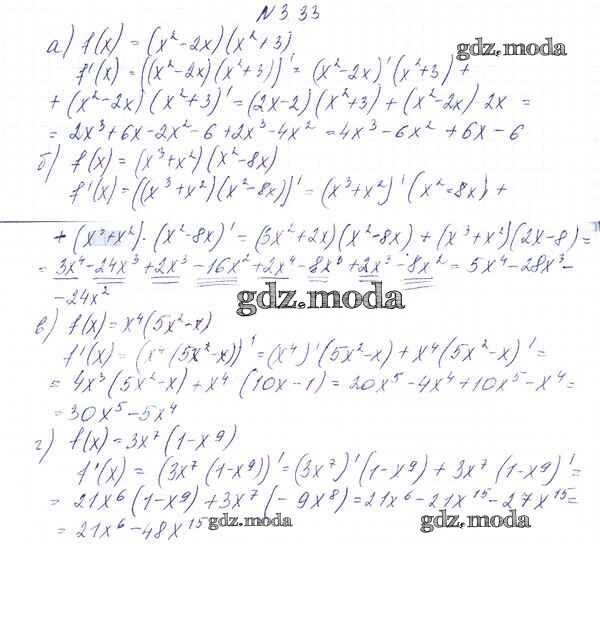 № 3.33
а) f(x) = (x²-2x)(x²+3)
f'(x) = ((x²-2x)(x²+3))' = (x²-2x)'(x²+3) +
+ (x²-2x)(x²+3)' = (2x-2)(x²+3) + (x²-2x) 2x =
= 2x³+6x-2x²-6+2x³-4x² = 4x³-6x²+6x-6
б) f(x) = (x³+x²)(x²-8x)
f'(x) = ((x³+x²)(x²-8x))' = (x³+x²)'(x²-8x) +
+ (x³+x²)·(x²-8x)' = (3x²+2x)(x²-8x) + (x³+x²)(2x-8) =
= 3x⁴-24x³+2x³-16x²+2x⁴-8x³+2x³-8x² = 5x⁴-28x³-
-24x²
gdz.moda
в) f(x) = x⁴(5x²-x)
f'(x) = (x⁴(5x²-x))' = (x⁴)'(5x²-x) + x⁴(5x²-x)' =
= 4x³(5x²-x) + x⁴(10x-1) = 20x⁵-4x⁴+10x⁵-x⁴ =
= 30x⁵-5x⁴
г) f(x) = 3x⁷(1-x⁹)
f'(x) = (3x⁷(1-x⁹))' = (3x⁷)'(1-x⁹) + 3x⁷(1-x⁹)' =
= 21x⁶(1-x⁹) + 3x⁷(-9x⁸) = 21x⁶-21x¹⁵-27x¹⁵ =
= 21x⁶-48x¹⁵
gdz.moda
gdz.moda
gdz.moda